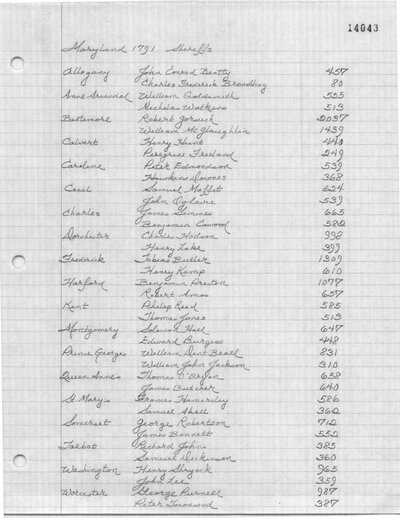 14043
Maryland 1791 Sheriffs
Allegany John Conrad Beatty 457
Charles Frederick Broadhag 80
Anne Arundel William Goldsmith 525
Nicholas Watkins 513
Baltimore Robert Gorsuch 2037
William McGlaughlin 1439
Calvert Henry Hunt 440
Peregrine Freeland 249
Caroline Peter Edmondson 539
Hawkin Downes 368
Cecil Samuel Maffet 624
John Ogleire 539
Charles James Simmes 665
Benjamin Cawood 582
Dorchester Charles Hodson 998
Henry Lake 399
Frederick Tobias Butler 1309
Henry Kemp 610
Harford Benjamin Preston 1077
Robert Amos 657
Kent Philip Reed 585
Thomas Jones 513
Montgomery Solomon Holl 647
Edward Burgess 448
Prince Georges William Dent Beall 831
William John Jackson 310
Queen Anne's Thomas O'Bryon 658
James Butcher 640
St Mary's Francis Hamersley 586
Samuel Abell 362
Somerset George Robertson 712
James Bennett 552
Talbot Richard Johns 385
Samuel Dickinson 360
Washington Henry Shryock 965
John Lee 359
Worcester George Purnell 987
Peter 387